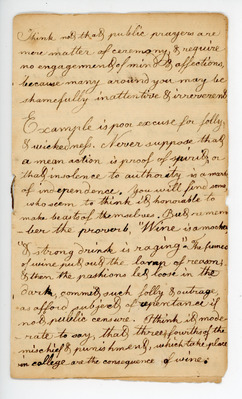 Think not that public prayers are
mere matter of ceremony, & require
no engagement of mind & affections,
because many around you may be
shamefully inattentive & irreverent.
Example is poor excuse for folly
& wickedness. Never suppose that
a mean action is proof of spirit, or
that insolence to authority is a mark
of independence. You will find some,
who seem to think it honorable to
make beasts of themselves. But remem-
ber the proverb, "Wine is a mocker
& strong drink is raging". The fumes
of wine put out the lamp of reason;
& then the passions let loose in the
dark, commit such folly & outrage,
as afford subject of repentance if
not public censure. I think it mode-
rate to say, that three fourths of the
mischief & punishment, which take place
in college are the consequence of wine.